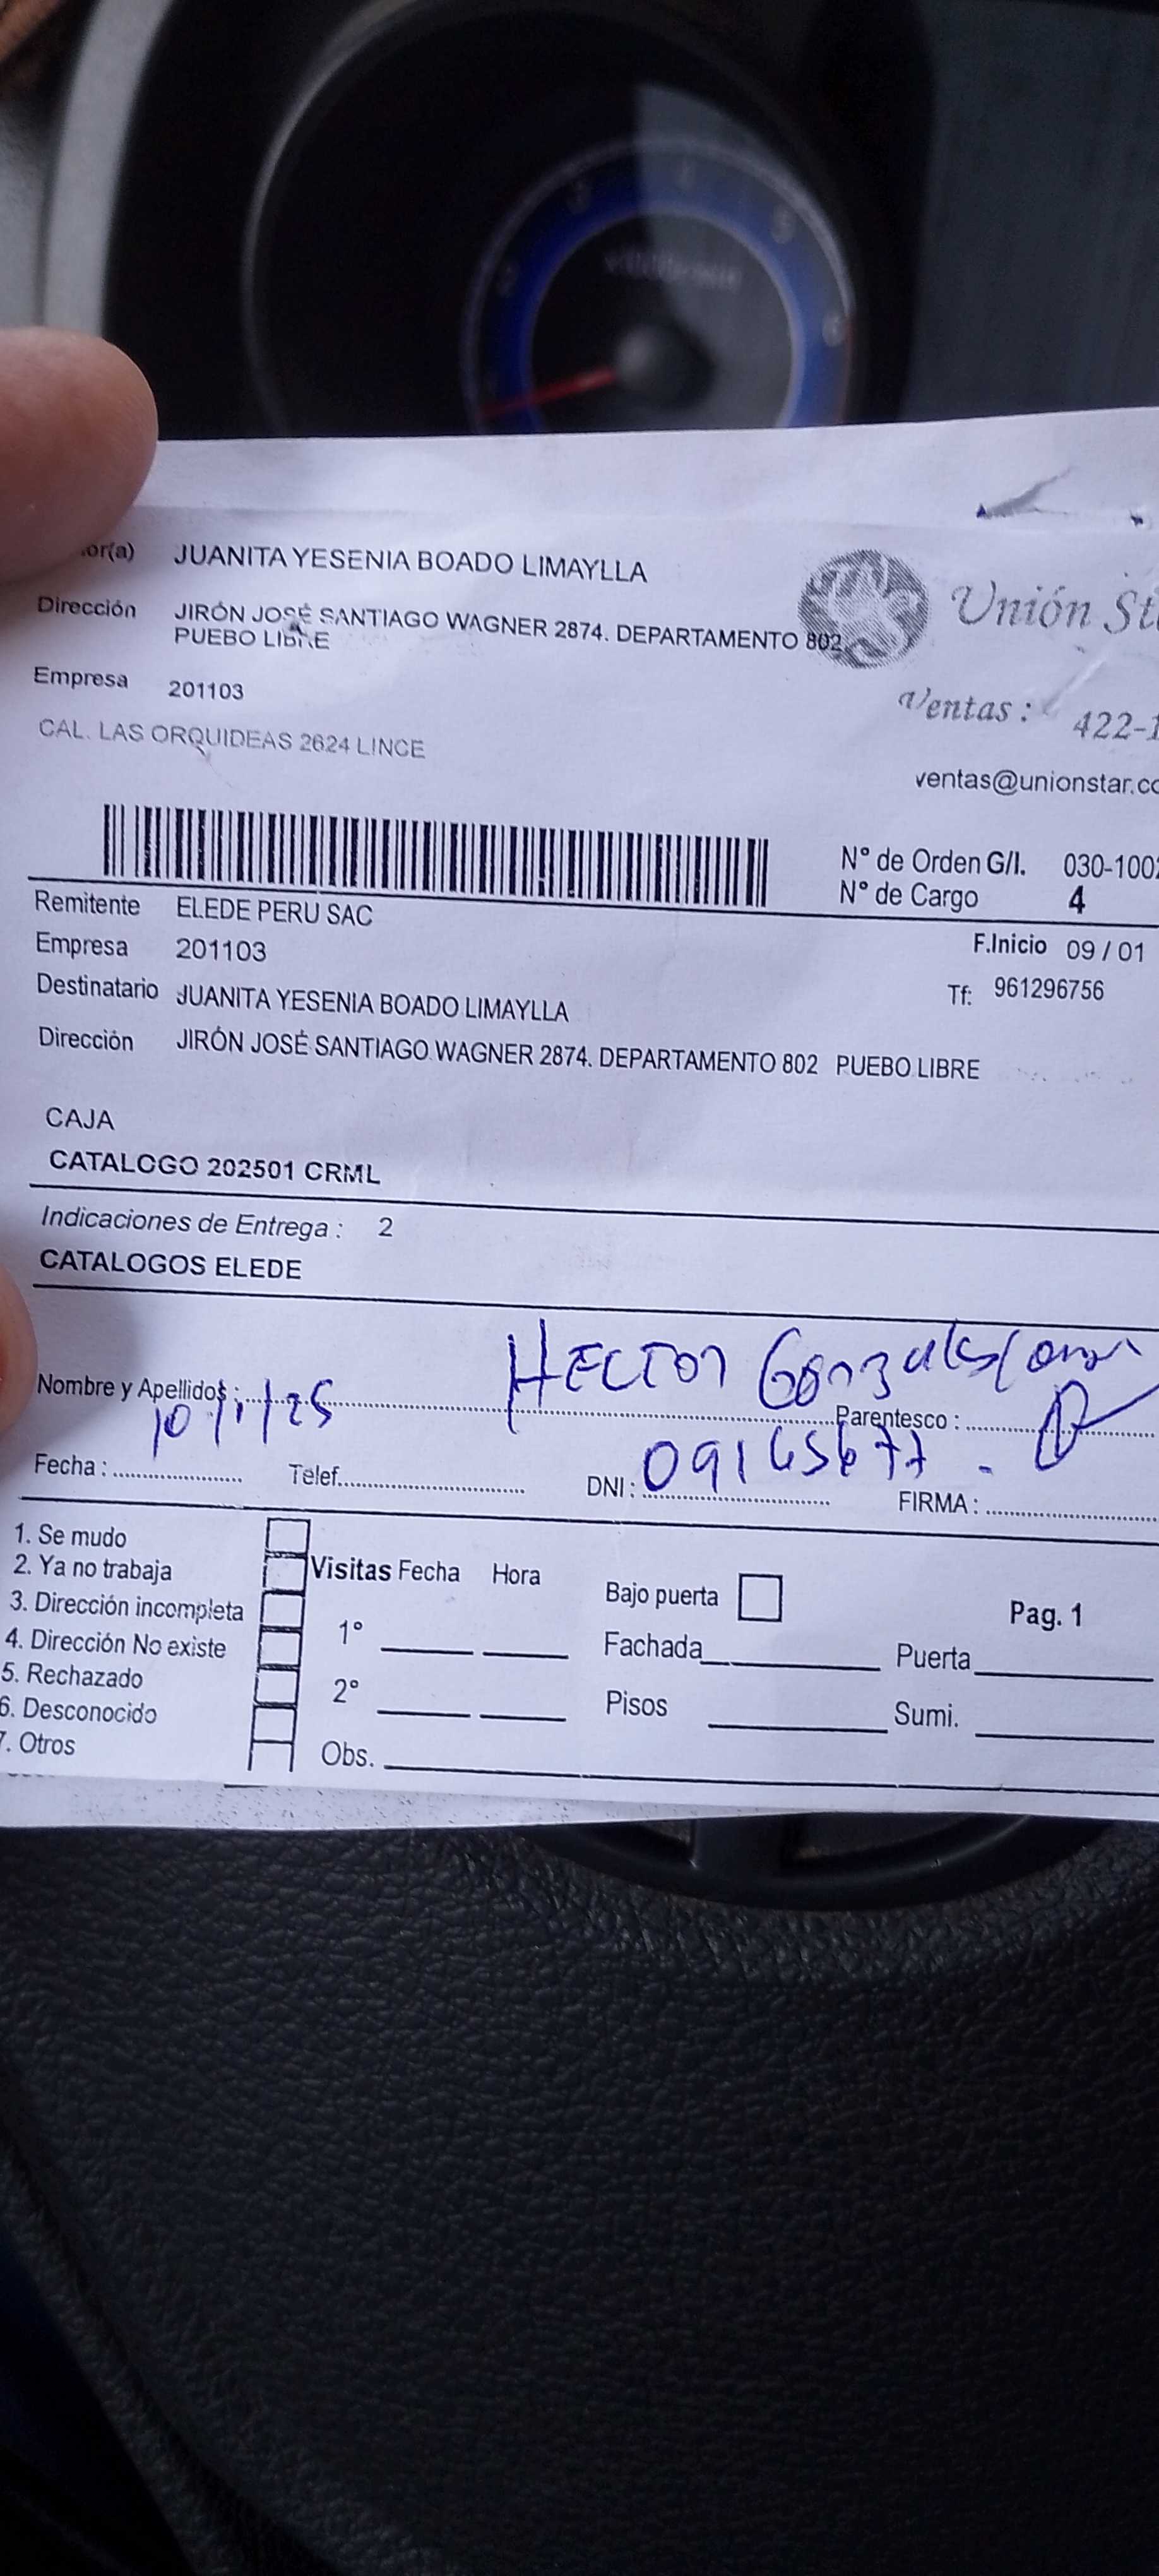 or(a) JUANITA YESENIA BOADO LIMAYLLA
Dirección JIRÓN JOSÉ SANTIAGO WAGNER 2874. DEPARTAMENTO 802
PUEBO LIBRE
Unión St
Empresa 201103
Ventas : 422-1
CAL. LAS ORQUIDEAS 2624 LINCE
ventas@unionstar.co
N° de Orden G/I. 030-100
N° de Cargo 4
Remitente ELEDE PERU SAC
Empresa 201103
F.Inicio 09 / 01
Destinatario JUANITA YESENIA BOADO LIMAYLLA
Tf: 961296756
Dirección JIRÓN JOSÉ SANTIAGO WAGNER 2874. DEPARTAMENTO 802 PUEBO LIBRE
CAJA
CATALOGO 202501 CRML
Indicaciones de Entrega : 2
CATALOGOS ELEDE
Nombre y Apellidos : HECTOR Gonzales
Parentesco :
Fecha : 10/1/25 Telef. DNI : 09145677 FIRMA :
1. Se mudo
2. Ya no trabaja
3. Dirección incompleta
4. Dirección No existe
5. Rechazado
6. Desconocido
7. Otros
Visitas Fecha Hora
1°
2°
Obs.
Bajo puerta
Fachada Puerta
Pisos Sumi.
Pag. 1